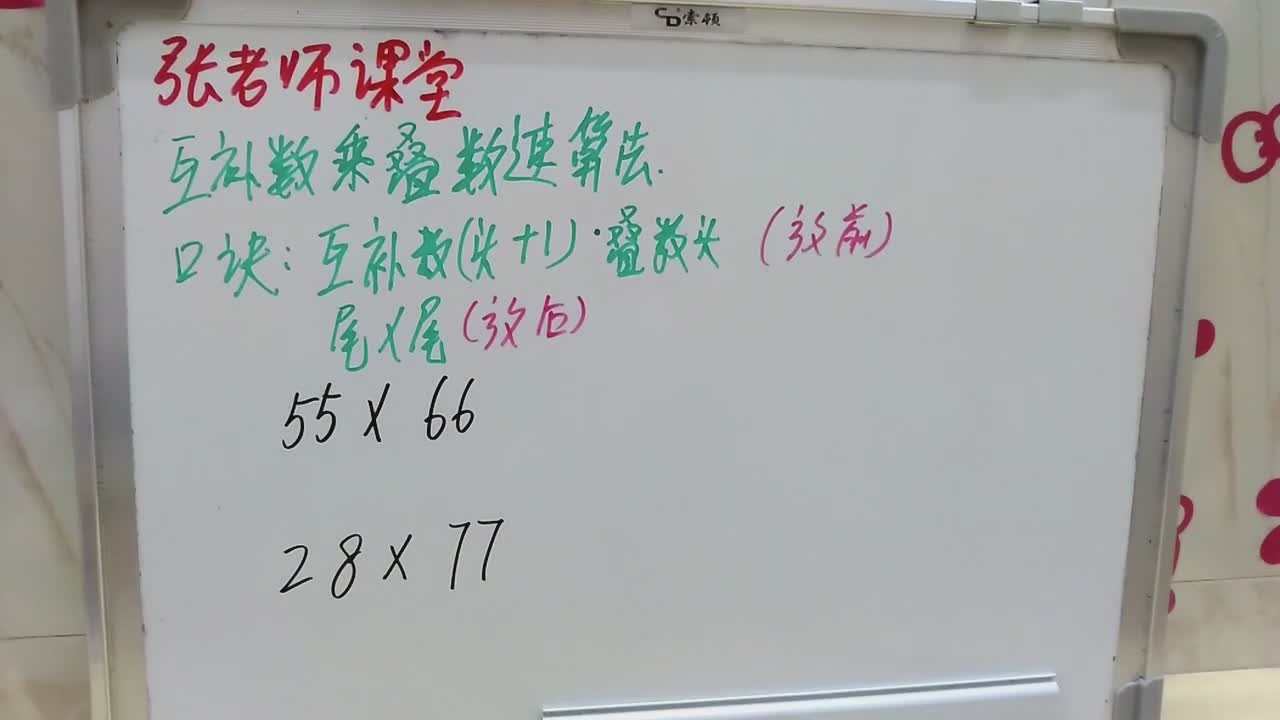 索顿
张老师课堂
互补数乘叠数速算法.
口诀:互补数(头+1)·叠数头(放前)
尾×尾(放后)
55×66
28×77